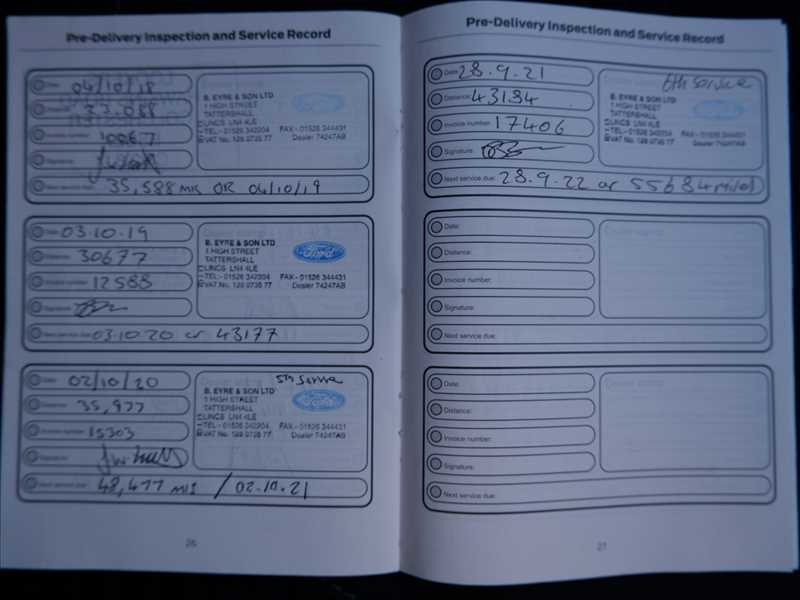 Pre-Delivery Inspection and Service Record
Date: 04/10/18
Distance:
Invoice number:
Signature:
Next service due: 35,588 MIS OR 04/10/19
B. EYRE & SON LTD
1 HIGH STREET
TATTERSHALL
LINCS LN4 4LE
TEL:- 01526 342204 FAX - 01526 344431
VAT No. 128 0735 77 Dealer 74247AB
Ford
Date: 03.10.19
Distance: 30677
Invoice number: 12588
Signature:
Next service due: 03.10.20 or 43177
B. EYRE & SON LTD
1 HIGH STREET
TATTERSHALL
LINCS LN4 4LE
TEL:- 01526 342204 FAX - 01526 344431
VAT No. 128 0735 77 Dealer 74247AB
Ford
Date: 02/10/20
Distance: 35,977
Invoice number: 15303
Signature:
Next service due: 48,477 MIS / 02.10.21
5th Service
B. EYRE & SON LTD
1 HIGH STREET
TATTERSHALL
LINCS LN4 4LE
TEL:- 01526 342204 FAX - 01526 344431
VAT No. 128 0735 77 Dealer 74247AB
Ford
26
Pre-Delivery Inspection and Service Record
Date: 28.9.21
Distance: 43184
Invoice number: 17406
Signature:
Next service due: 28.9.22 or 55684 miles
6th Service
B. EYRE & SON LTD
1 HIGH STREET
TATTERSHALL
LINCS LN4 4LE
TEL:- 01526 342204 FAX - 01526 344431
VAT No. 128 0735 77 Dealer 74247AB
Ford
Date:
Distance:
Invoice number:
Signature:
Next service due:
Date:
Distance:
Invoice number:
Signature:
Next service due:
27